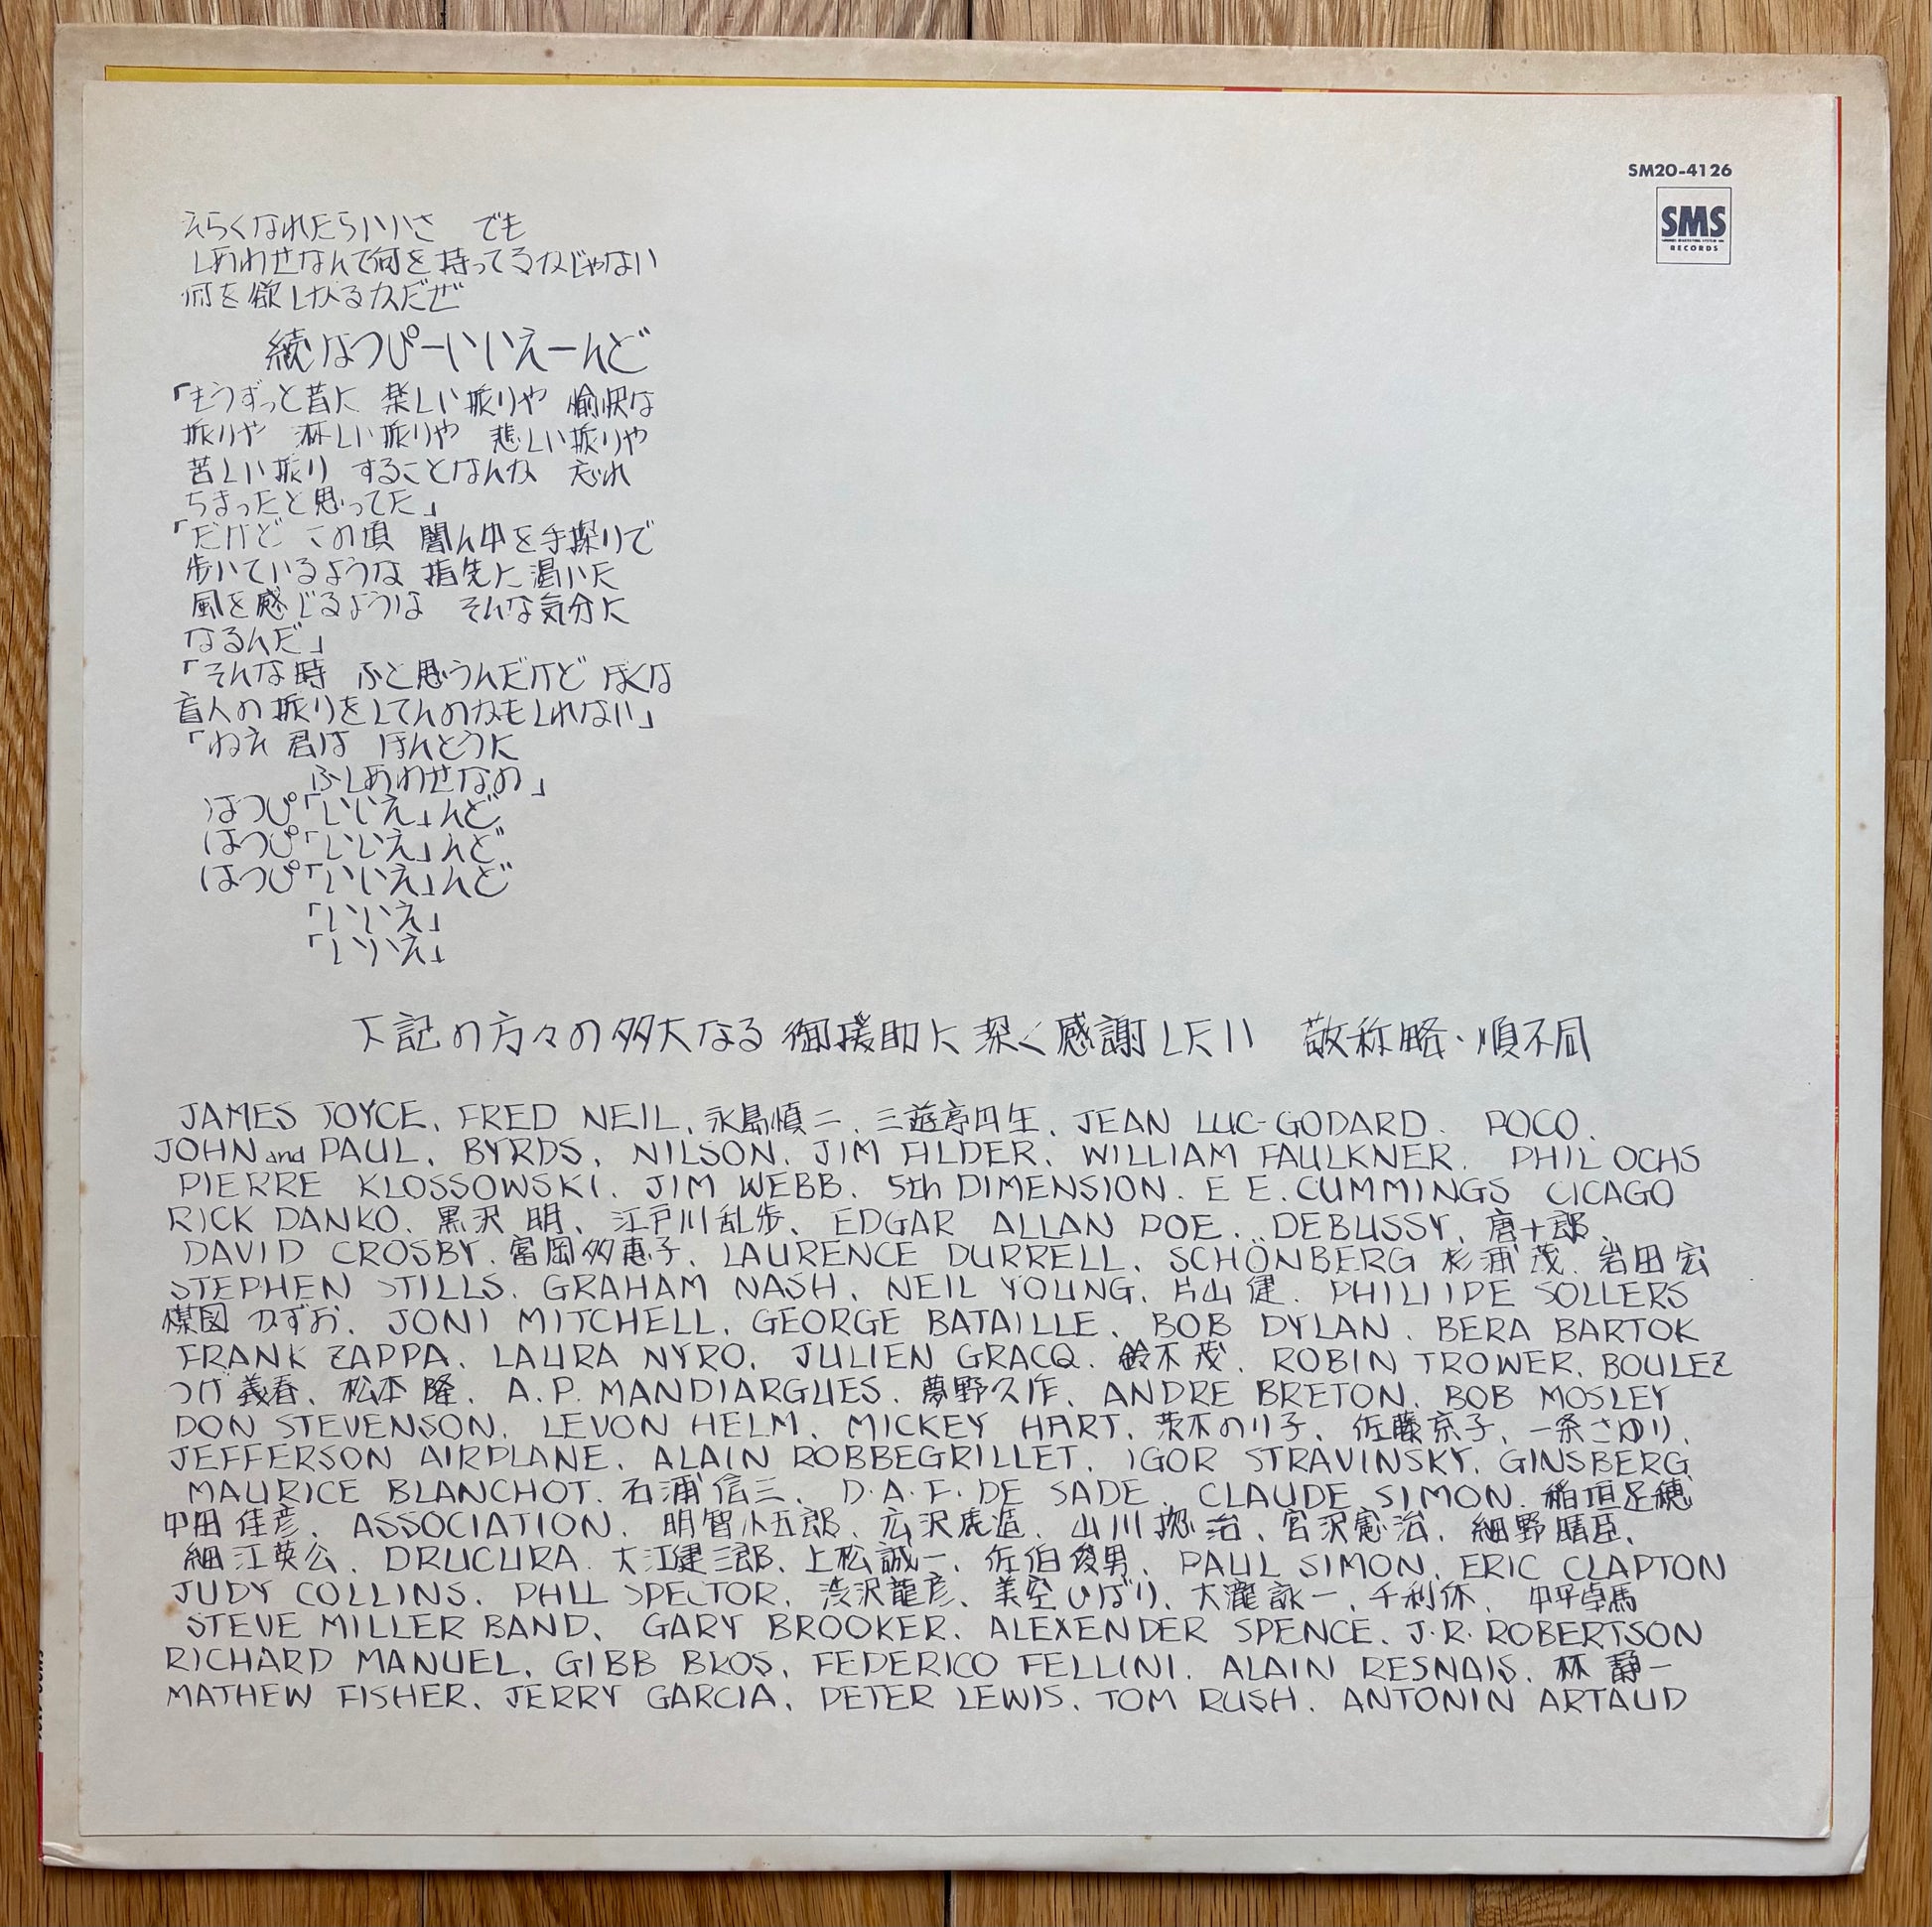 SM20-4126
SMS
RECORDS
えらくなれたらいいさ でも
しあわせなんて何を持ってるかじゃない
何を欲しがるかだぜ
続はっぴーいいえーんど
「もうずっと昔に 楽しい振りや 愉快な
振りや 淋しい振りや 悲しい振りや
苦しい振り することなんか 忘れ
ちまったと思ってた」
「だけど この頃 闇ん中を手探りで
歩いているような 指先に渇いた
風を感じるような そんな気分に
なるんだ」
「そんな時 ふと思うんだけど ぼくは
盲人の振りをしてんのかもしれない」
「ねえ 君は ほんとうに
ふしあわせなの」
はっぴ「いいえ」んど
はっぴ「いいえ」んど
はっぴ「いいえ」んど
「いいえ」
「いいえ」
下記の方々の多大なる御援助に深く感謝したい 敬称略・順不同
JAMES JOYCE, FRED NEIL, 永島慎二, 三遊亭円生, JEAN LUC-GODARD. POCO,
JOHN and PAUL, BYRDS, NILSON, JIM FILDER, WILLIAM FAULKNER, PHIL OCHS
PIERRE KLOSSOWSKI, JIM WEBB, 5th DIMENSION. E E.CUMMINGS CICAGO
RICK DANKO, 黒沢 明, 江戸川乱歩, EDGAR ALLAN POE, DEBUSSY, 唐十郎,
DAVID CROSBY, 富岡多恵子, LAURENCE DURRELL, SCHÖNBERG 杉浦茂, 岩田宏
STEPHEN STILLS, GRAHAM NASH, NEIL YOUNG, 片山健, PHILIIPE SOLLERS
楳図かずお, JONI MITCHELL, GEORGE BATAILLE, BOB DYLAN, BERA BARTOK
FRANK ZAPPA, LAURA NYRO, JULIEN GRACQ, 鈴木茂, ROBIN TROWER, BOULEZ
つげ義春, 松本隆, A.P. MANDIARGUES, 夢野久作, ANDRE BRETON, BOB MOSLEY
DON STEVENSON, LEVON HELM, MICKEY HART, 茨木のり子, 佐藤京子, 一条さゆり,
JEFFERSON AIRPLANE, ALAIN ROBBEGRILLET, IGOR STRAVINSKY, GINSBERG
MAURICE BLANCHOT, 石浦信三, D.A.F.DE SADE, CLAUDE SIMON, 稲垣足穂
甲田佳彦, ASSOCIATION, 明智小五郎, 広沢虎造, 山川 治, 宮沢憲治, 細野晴臣,
細江英公, DRUCURA, 大江健三郎, 上松誠一, 佐伯俊男, PAUL SIMON, ERIC CLAPTON
JUDY COLLINS, PHIL SPECTOR, 渋沢龍彦, 美空ひばり, 大瀧詠一, 千利休, 中平卓馬
STEVE MILLER BAND, GARY BROOKER, ALEXENDER SPENCE, J.R. ROBERTSON
RICHARD MANUEL, GIBB BROS, FEDERICO FELLINI, ALAIN RESNAIS, 林 静一
MATHEW FISHER, JERRY GARCIA, PETER LEWIS, TOM RUSH, ANTONIN ARTAUD